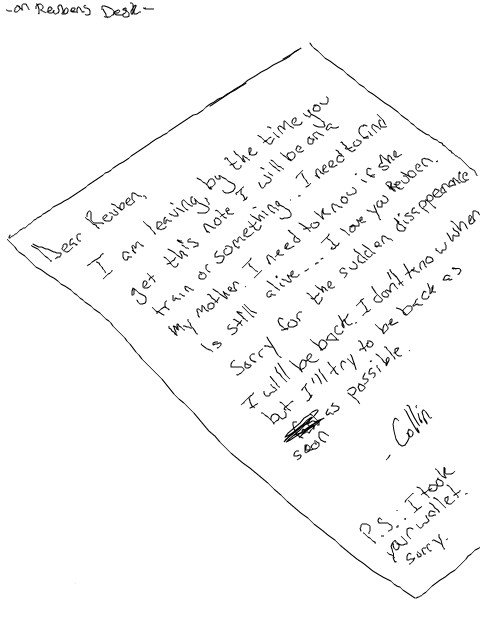 -on Reubens Desk-
Dear Reuben,
I am leaving, by the time you
get this note I will be on a
train or something.. I need to find
my mother. I need to know if she
is still alive.... I love you Reuben.
Sorry for the sudden disapperence
I will be back. I don't know when
but I'll try to be back as
soon as possible.
- Collin
P.S.: I took
your wallet.
sorry.